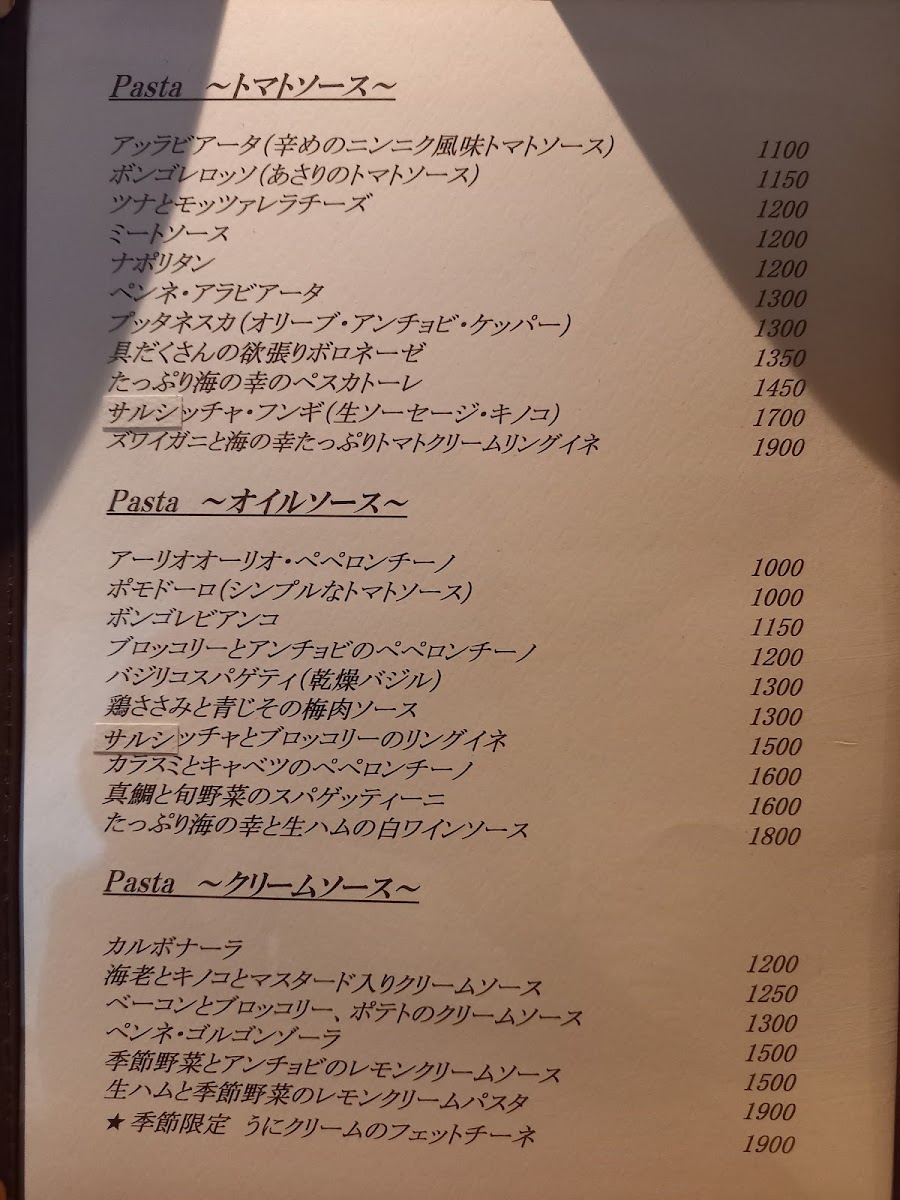 Pasta ～トマトソース～
アッラビアータ(辛めのニンニク風味トマトソース) 1100
ボンゴレロッソ(あさりのトマトソース) 1150
ツナとモッツァレラチーズ 1200
ミートソース 1200
ナポリタン 1200
ペンネ・アラビアータ 1300
プッタネスカ(オリーブ・アンチョビ・ケッパー) 1300
具だくさんの欲張りボロネーゼ 1350
たっぷり海の幸のペスカトーレ 1450
サルシッチャ・フンギ(生ソーセージ・キノコ) 1700
ズワイガニと海の幸たっぷりトマトクリームリングイネ 1900
Pasta ～オイルソース～
アーリオオーリオ・ペペロンチーノ 1000
ポモドーロ(シンプルなトマトソース) 1000
ボンゴレビアンコ 1150
ブロッコリーとアンチョビのペペロンチーノ 1200
バジリコスパゲティ(乾燥バジル) 1300
鶏ささみと青じその梅肉ソース 1300
サルシッチャとブロッコリーのリングイネ 1500
カラスミとキャベツのペペロンチーノ 1600
真鯛と旬野菜のスパゲッティーニ 1600
たっぷり海の幸と生ハムの白ワインソース 1800
Pasta ～クリームソース～
カルボナーラ 1200
海老とキノコとマスタード入りクリームソース 1250
ベーコンとブロッコリー、ポテトのクリームソース 1300
ペンネ・ゴルゴンゾーラ 1500
季節野菜とアンチョビのレモンクリームソース 1500
生ハムと季節野菜のレモンクリームパスタ 1900
★季節限定 うにクリームのフェットチーネ 1900